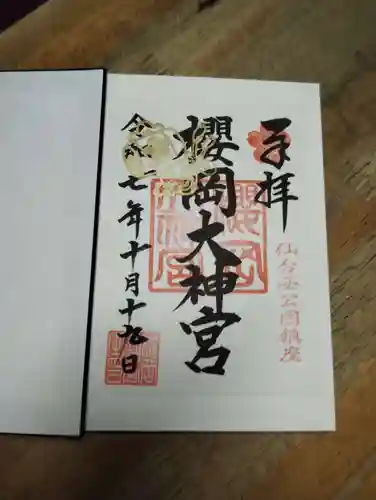 奉拝
仙台西公園鎮座
櫻岡大神宮
令和七年十月十九日